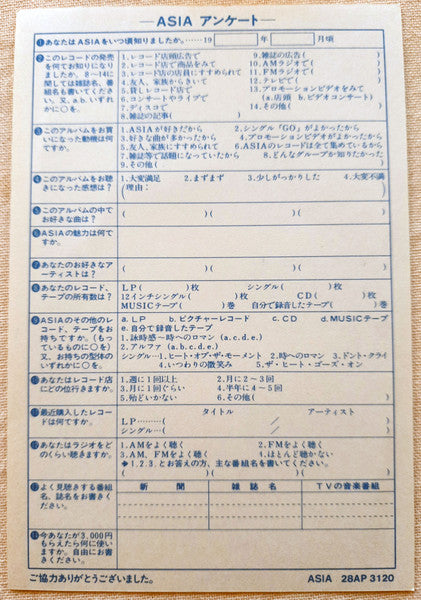 —ASIA アンケート—
❶あなたはASIAをいつ頃知りましたか。……19 年 月頃
❷このレコードの発売を何でお知りになりましたか。8〜14に関しては雑誌名、番組名も書いてください。又、a、b、いずれかに○を。
1. レコード店頭広告で
2. レコード店で商品をみて
3. レコード店の店員にすすめられて
4. 友人、家族にきいて
5. 貸しレコード店で
6. コンサートやライブで
7. ディスコで
8. 雑誌の記事( )
9. 雑誌の広告( )
10. AMラジオで( )
11. FMラジオで( )
12. テレビで( )
13. プロモーションビデオをみて
(a. 店頭 b. ビデオコンサート)
14. その他( )
❸このアルバムをお買いになった動機は何ですか。
1. ASIAが好きだから 2. シングル「GO」がよかったから
3. 好きな曲が多かったから 4. プロモーションビデオがよかったから
5. 友人、家族にすすめられて 6. ASIAのレコードは全て集めているから
7. 雑誌等で話題になっていたから 8. どんなグループか知りたかった
9. その他( )
❹このアルバムをお聴きになった感想は?
1. 大変満足 2. まずまず 3. 少しがっかりした 4. 大変不満
(理由: )
❺このアルバムの中でお好きな曲は?
( )( )( )
❻ASIAの魅力は何ですか。
❼あなたのお好きなアーティストは?
( )( )( )
❽あなたのレコード、テープの所有数は?
LP( )枚 シングル( )枚
12インチシングル( )枚 CD( )枚
MUSICテープ( )巻 自分で録音したテープ( )巻
❾ASIAのその他のレコード、テープをお持ちですか。(もっているものに○を)又、お持ちの型体のいずれかに○を。
a. LP b. ピクチャーレコード c. CD d. MUSICテープ
e. 自分で録音したテープ
1. 詠時感〜時へのロマン (a. c. d. e.)
2. アルファ (a. b. c. d. e.)
シングル…1. ヒート・オブ・ザ・モーメント 2. 時へのロマン 3. ドント・クライ
4. いつわりの微笑み 5. ザ・ヒート・ゴーズ・オン
❿あなたはレコード店にどの位行きますか。
1. 週に1回以上 2. 月に2〜3回
3. 月に1回ぐらい 4. 半年に4〜5回
5. 殆どいかない 6. その他( )
⓫最近購入したレコードは何ですか。
タイトル アーティスト
LP………( / )
シングル…( / )
⓬あなたはラジオをどのくらい聴きますか。
1. AMをよく聴く 2. FMをよく聴く
3. AM、FMをよく聴く 4. ほとんど聴かない
◆1. 2. 3. とお答えの方、主な番組名を書いてください。
( )
⓭よく見聴きする番組名、誌名をお書きください。
新聞 雑誌名 TVの音楽番組
⓮今あなたが3,000円もらえたら何に使いますか。自由にお書きください。
ご協力ありがとうございました。 ASIA 28AP 3120